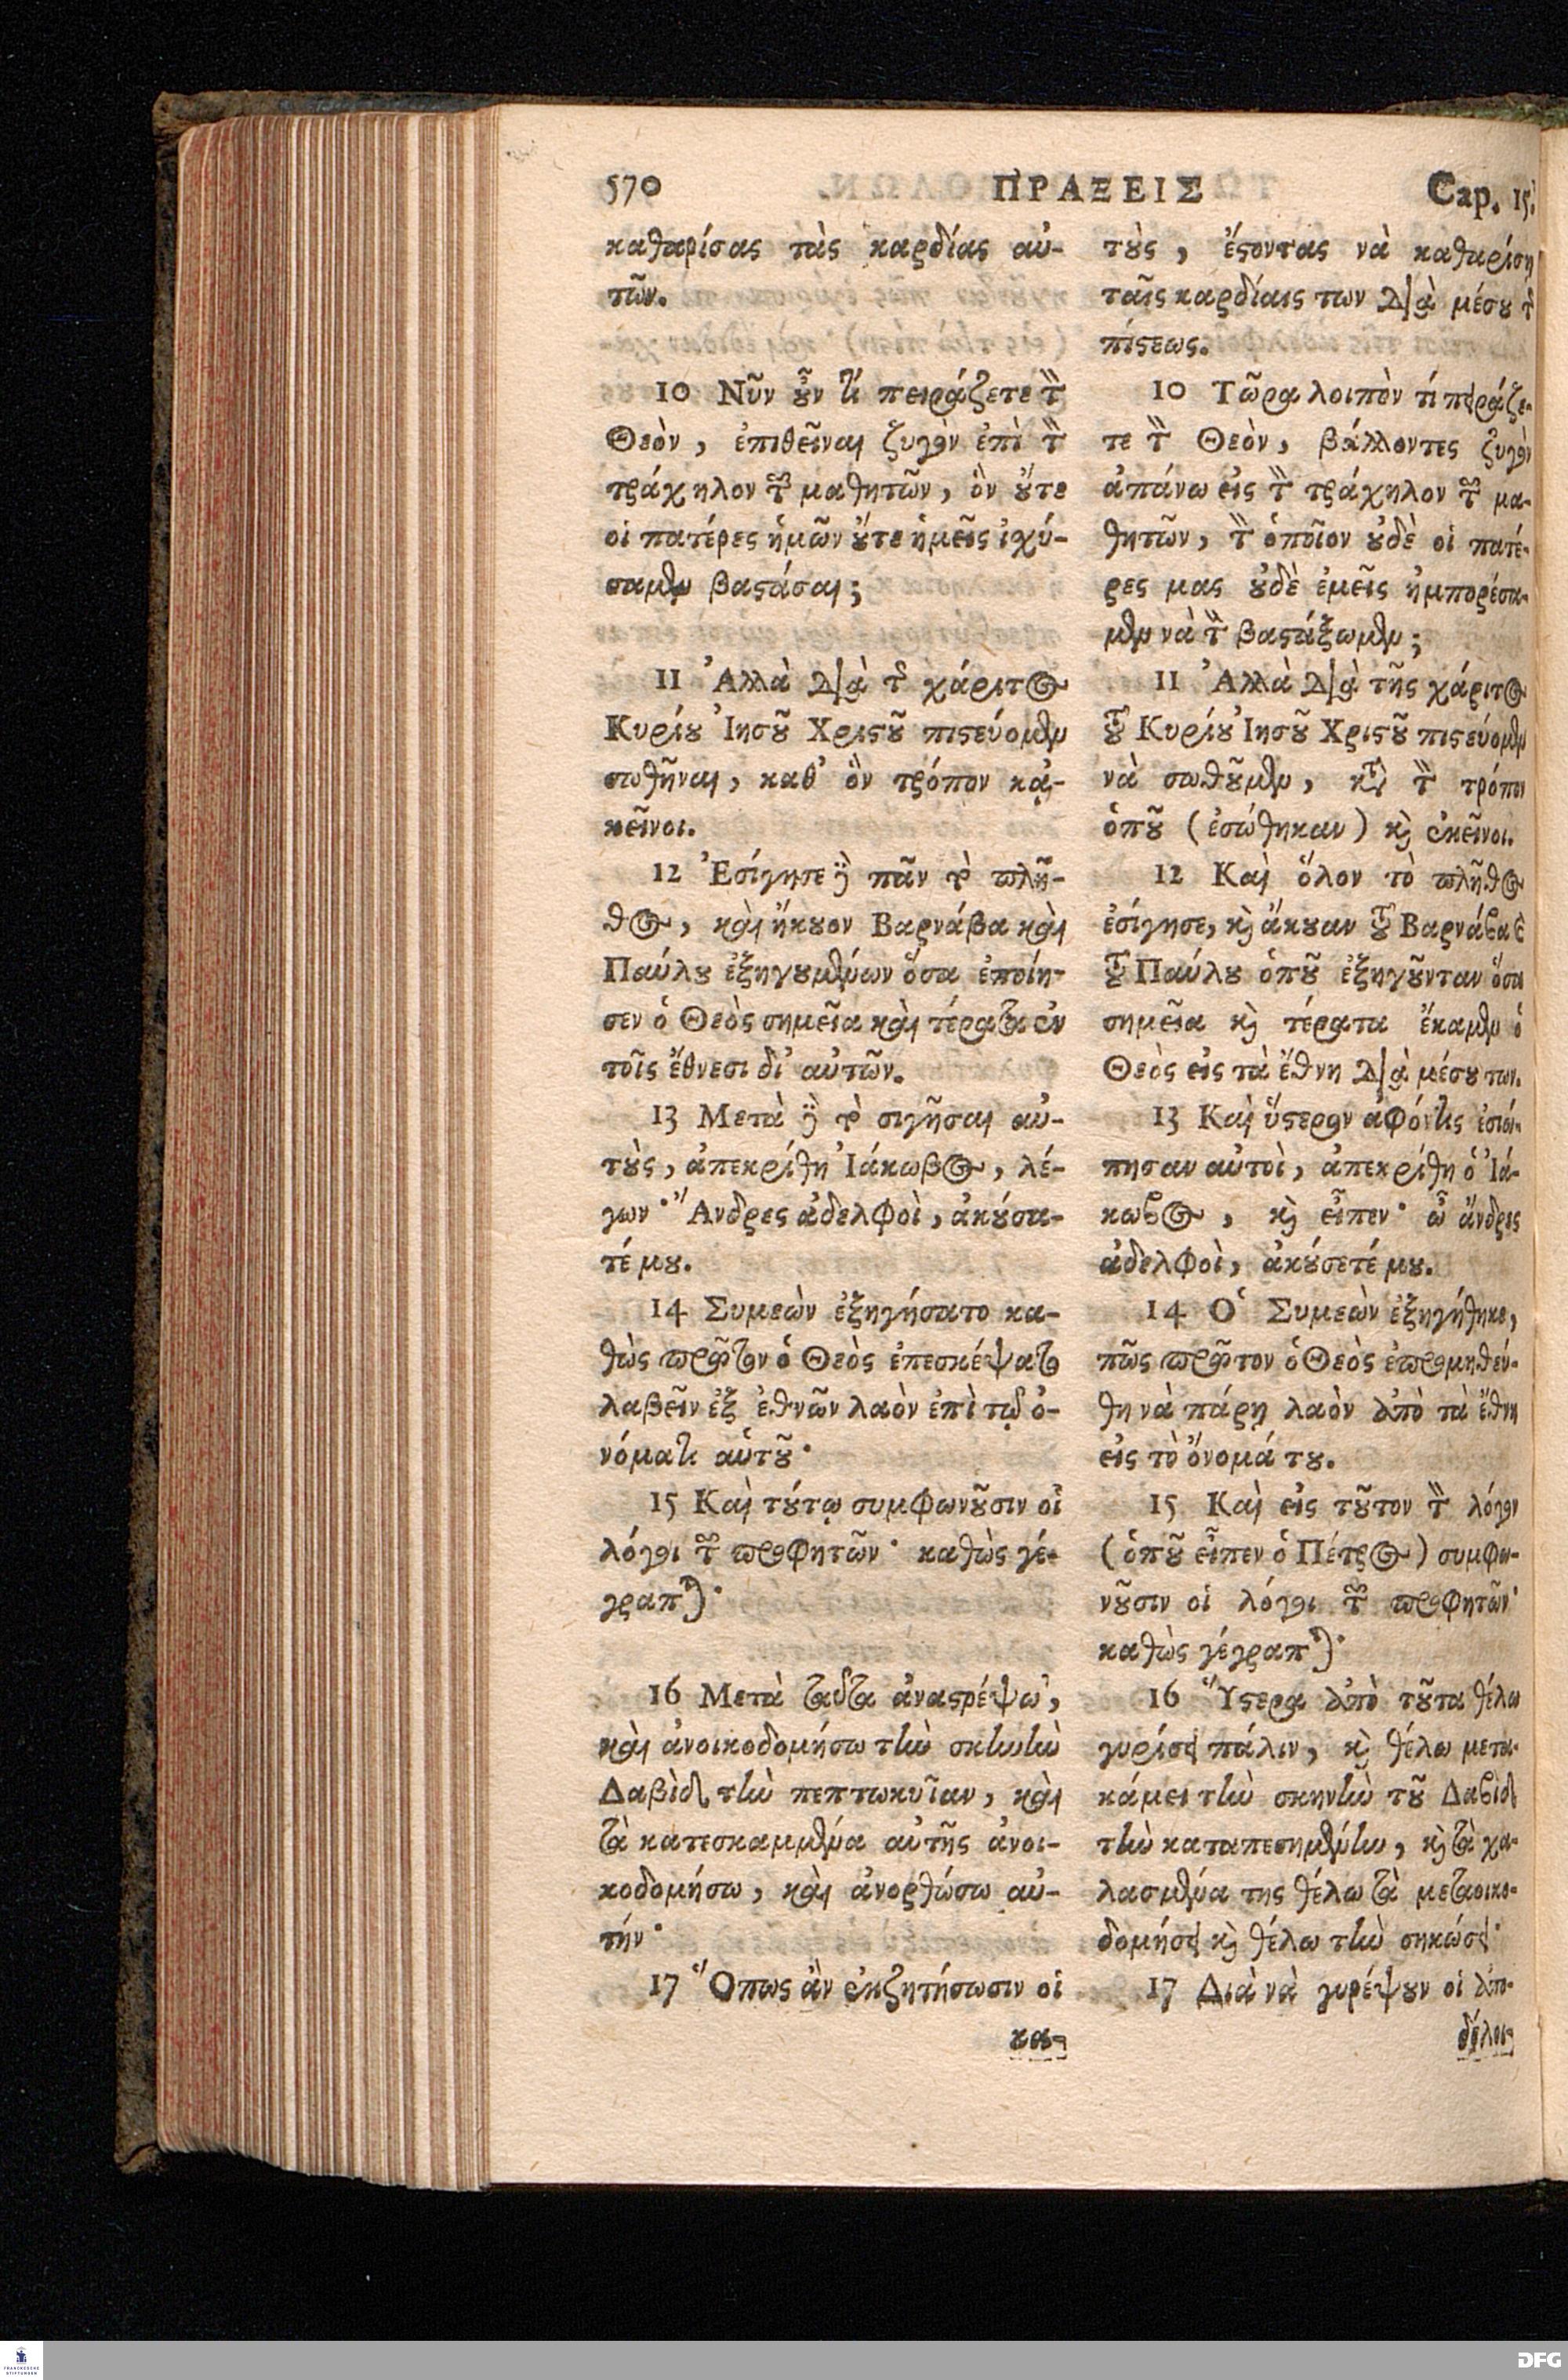 570 ΠΡΑΞΕΙΣ Cap. 15.
καθαρίσας τὰς καρδίας αὐ-
τῶν.
10 Νῦν ȣ̓͂ν τί πειράζετε τὸν
Θεὸν, ἐπιθεῖναι ζυγὸν ἐπὶ τὸν
τράχηλον τῶν μαθητῶν, ὃν ȣ̓́τε
οἱ πατέρες ἡμῶν ȣ̓́τε ἡμεῖς ἰχύ-
σαμεν βαϛάσαι;
11 Ἀλλὰ διὰ τῆς χάριτος
Κυρίȣ Ἰησȣ͂ Χριϛȣ͂ πιϛεύομεν
σωθῆναι, καθ' ὃν τρόπον κᾀ-
κεῖνοι.
12 Ἐσίγησε δὲ πᾶν τὸ πλῆ-
θος, καὶ ἤκȣον Βαρνάβα καὶ
Παύλȣ ἐξηγȣμένων ὅσα ἐποίη-
σεν ὁ Θεὸς σημεῖα καὶ τέρατα ἐν
τοῖς ἔθνεσι δι' αὐτῶν.
13 Μετὰ δὲ τὸ σιγῆσαι αὐ-
τȣ̀ς, ἀπεκρίθη Ἰάκωβος, λέ-
γων· Ἄνδρες ἀδελφοὶ, ἀκȣ́σα-
τέ μȣ.
14 Συμεὼν ἐξηγήσατο κα-
θὼς πρῶτον ὁ Θεὸς ἐπεσκέψατο
λαβεῖν ἐξ ἐθνῶν λαὸν ἐπὶ τῷ ὀ-
νόματι αὑτȣ͂·
15 Καὶ τȣ́τῳ συμφωνȣ͂σιν οἱ
λόγοι τῶν προφητῶν· καθὼς γέ-
γραπται·
16 Μετὰ ταῦτα ἀναϛρέψω,
καὶ ἀνοικοδομήσω τὴν σκηνὴν
Δαβὶδ τὴν πεπτωκυῖαν, καὶ
τὰ κατεσκαμμένα αὐτῆς ἀνοι-
κοδομήσω, καὶ ἀνορθώσω αὐ-
τήν·
17 Ὅπως ἂν ἐκζητήσωσιν οἱ
κα-
τȣ̀ς, ἔϛοντας νὰ καθαρίση
ταῖς καρδίαις των διὰ μέσȣ τῆς
πίϛεως.
10 Τῶρα λοιπὸν τί πειράζε-
τε τὸν Θεὸν, βάλλοντες ζυγὸν
ἀπάνω εἰς τὸν τράχηλον τῶν μα-
θητῶν, τὸν ὁποῖον ȣ̓δὲ οἱ πατέ-
ρες μας ȣ̓δὲ ἐμεῖς ἠμπορέσα-
μεν νὰ τὸν βαϛάξωμεν;
11 Ἀλλὰ διὰ τῆς χάριτος
τȣ͂ Κυρίȣ Ἰησȣ͂ Χριϛȣ͂ πιϛεύομεν
νὰ σωθȣ͂μεν, κατὰ τὸν τρόπον
ὁπȣ͂ (ἐσώθηκαν) κὶ ἐκεῖνοι.
12 Καὶ ὅλον τὸ πλῆθος
ἐσίγησε, κὶ ἄκȣαν τȣ͂ Βαρνάβα κὶ
τȣ͂ Παύλȣ ὁπȣ͂ ἐξηγȣ͂νταν ὅσα
σημεῖα κὶ τέρατα ἔκαμεν ὁ
Θεὸς εἰς τὰ ἔθνη διὰ μέσȣ των.
13 Καὶ ὕϛερον ἀφόντις ἐσιώ-
πησαν αὐτοὶ, ἀπεκρίθη ὁ Ἰά-
κωβος, κὶ εἶπεν· ὦ ἄνδρες
ἀδελφοὶ, ἀκȣ́σετέ μȣ.
14 Ὁ Συμεὼν ἐξηγήθηκε,
πῶς πρῶτον ὁ Θεὸς ἐπρομηθεύ-
θη νὰ πάρῃ λαὸν ἀπὸ τὰ ἔθνη
εἰς τὸ ὄνομά τȣ.
15 Καὶ εἰς τȣ͂τον τὸν λόγον
(ὁπȣ͂ εἶπεν ὁ Πέτρος) συμφω-
νȣ͂σιν οἱ λόγοι τῶν προφητῶν·
καθὼς γέγραπται·
16 Ὕϛερα ἀπὸ τȣ͂τα θέλω
γυρίσει πάλιν, κὶ θέλω μετα-
κάμει τὴν σκηνὴν τȣ͂ Δαβὶδ
τὴν καταπεσημένην, κὶ τὰ χα-
λασμένα της θέλω τὰ μεταοικο-
δομήσει κὶ θέλω τὴν σηκώσει·
17 Διὰ νὰ γυρέψȣν οἱ ἀπο-
δέλοι-
FRANCKESCHE STIFTUNGEN
DFG